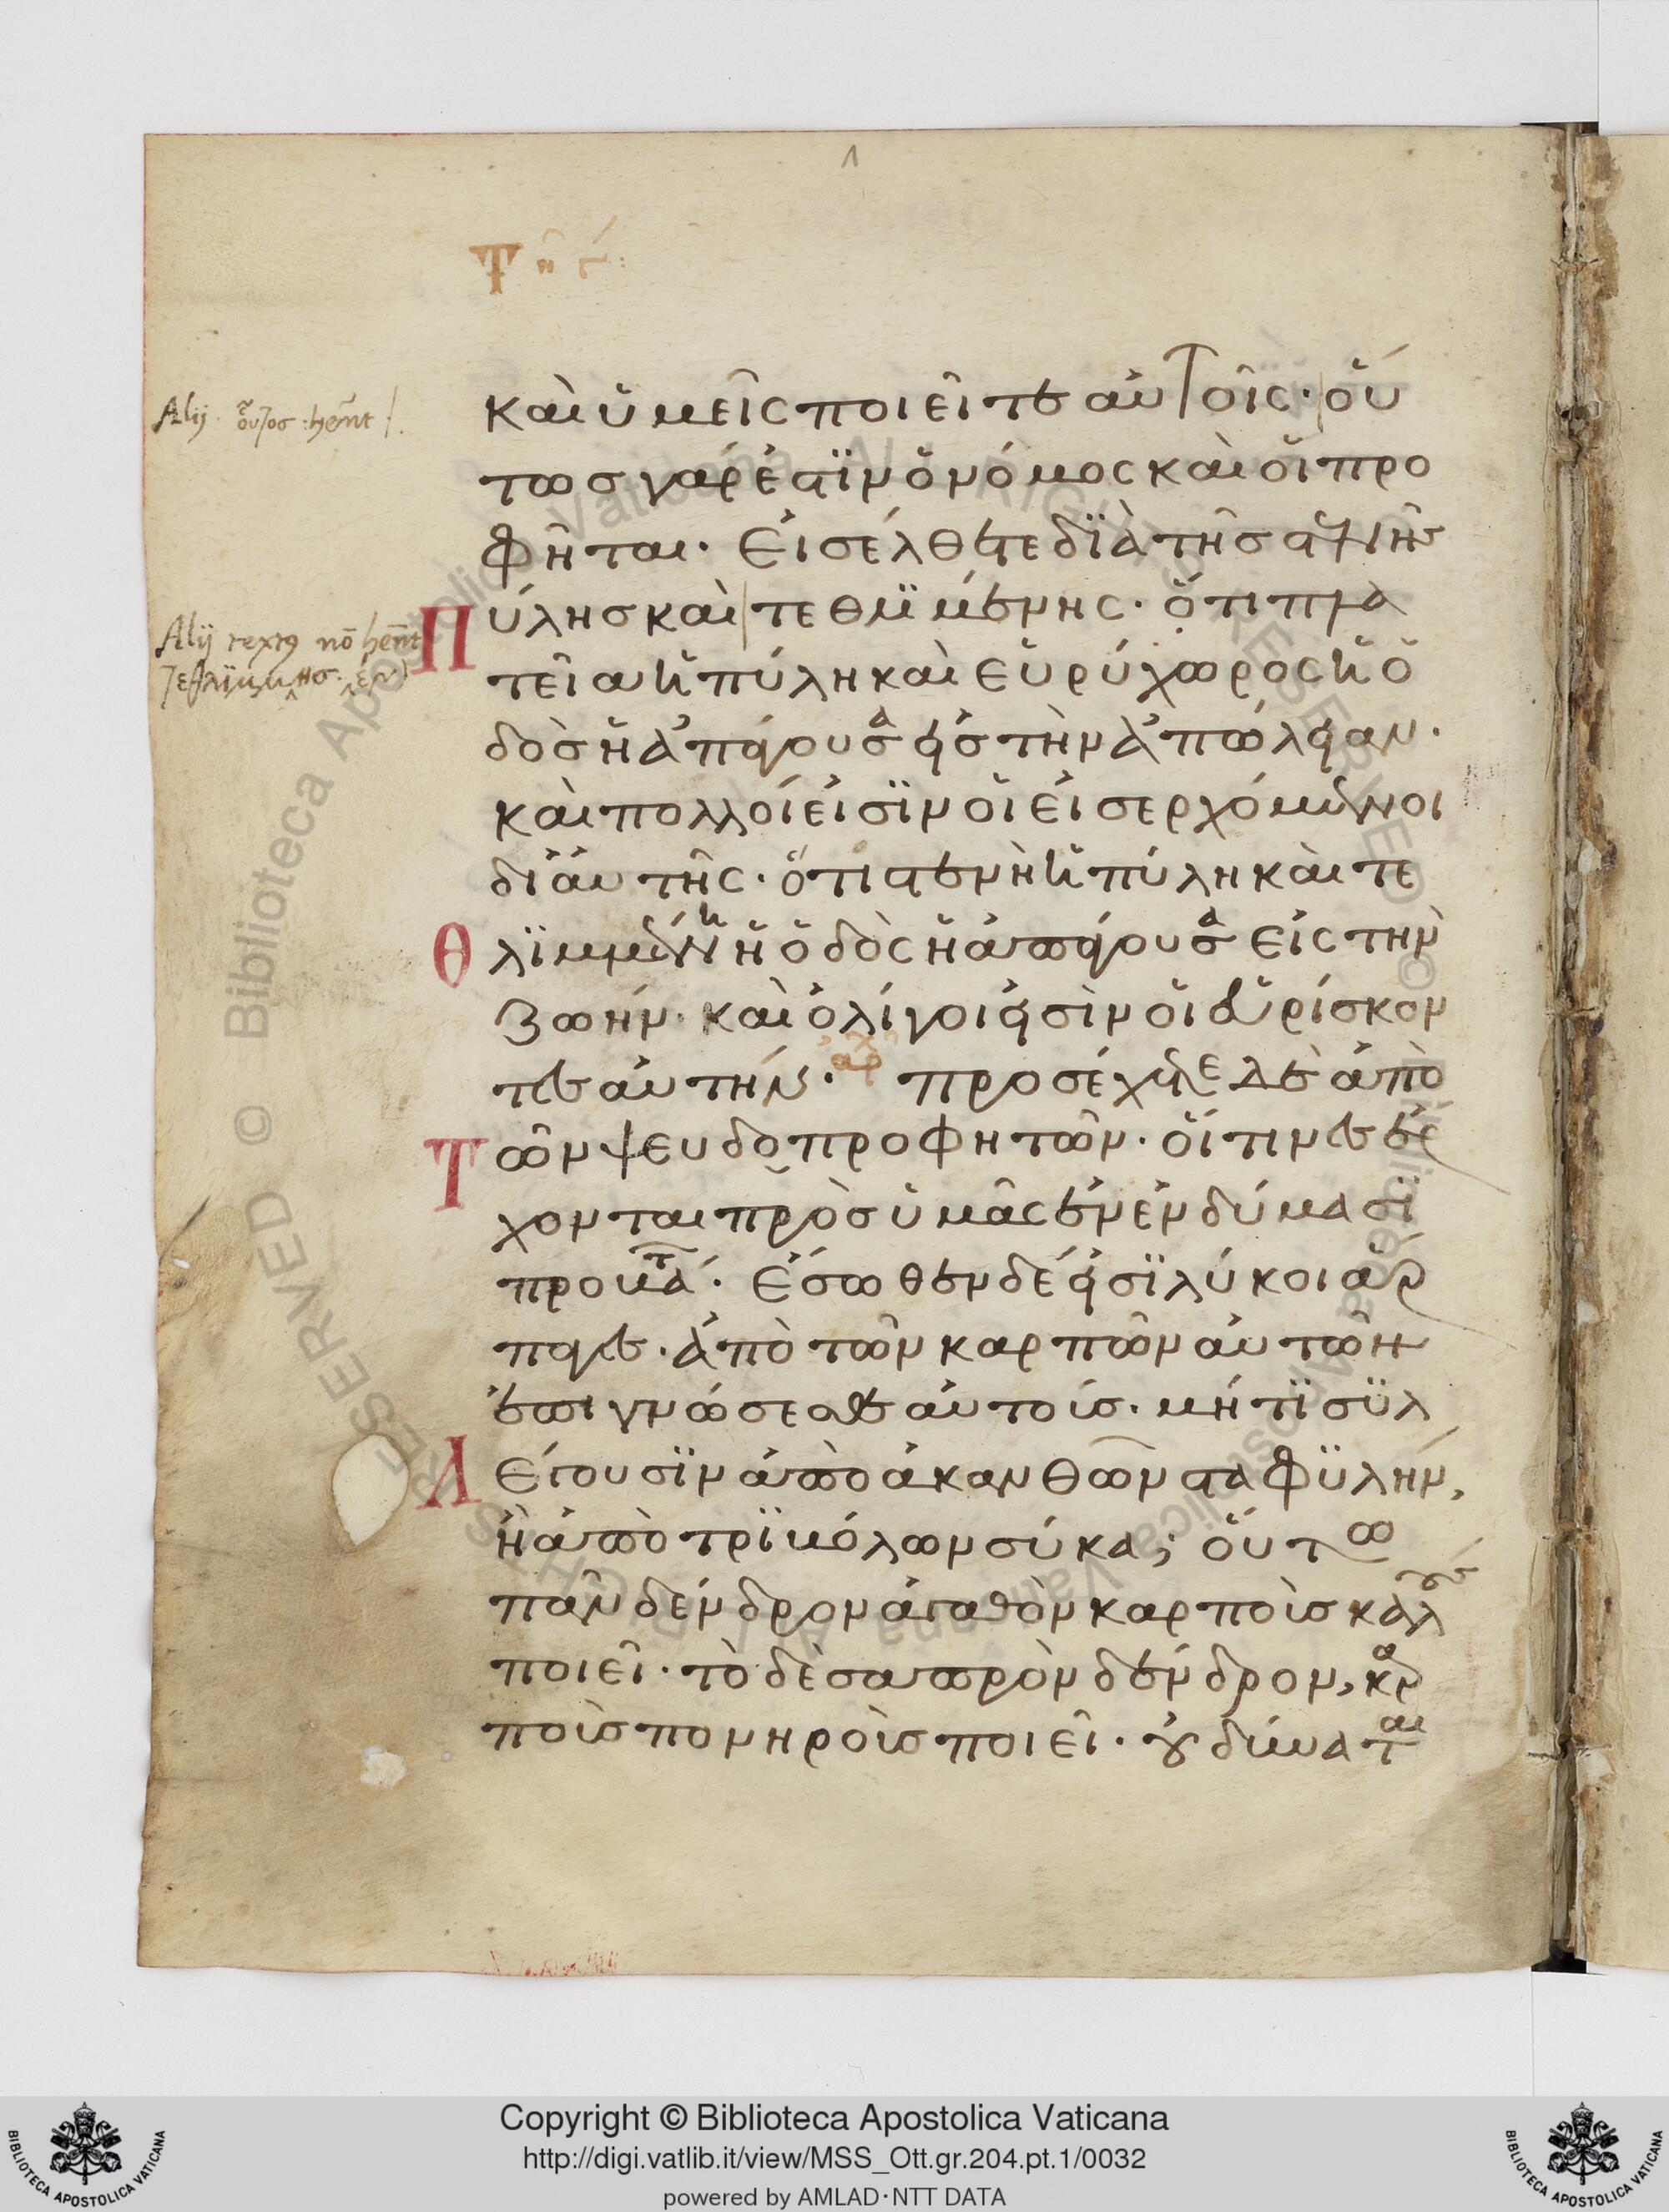 καὶ ὑμεῖς ποιεῖτε αὐτοῖς· οὕ
Alij οὗτος :hent
τως γάρ ἐστϊν ὁ νόμος καὶ οἱ προ
φῆται· Εἰσέλθετε δϊὰ τῆς στενῆς
Πύλης καὶ τεθλϊμμένης· ὅτι πλα
Alij textus nō hent
τεῖα ἡ πύλη καὶ εὐρύχωρος ἡ ὁ
δὸς ἡ ἀπάγουσα εἰς τὴν ἀπώλειαν·
καὶ πολλοί εἰσϊν οἱ εἰσερχόμενοι
δι' αὐτῆς· ὅτι στενὴ ἡ πύλη καὶ τε
Θλϊμμένη ἡ ὁδὸς ἡ ἀπάγουσα εἰς τὴν
ζωήν· καὶ ὀλίγοι εἰσὶν οἱ εὑρίσκον
τες αὐτήν· ἀρχ προσέχετε δὲ ἀπὸ
Τῶν ψευδοπροφητῶν· οἵτινες ἔρ
χονται πρὸς ὑμᾶς ἐν ἐνδύμασϊ
προβάτ· Ἔσωθεν δέ εἰσϊ λύκοι ἅρ
παγες· ἀπὸ τῶν καρπῶν αὐτῶν
ἐπιγνώσεσθε αὐτούς· μήτϊ σϋλ
Λέγουσϊν ἀπὸ ἀκανθῶν σταφϋλήν,
ἢ ἀπὸ τρϊβόλων σύκα; οὕτω
πᾶν δένδρον ἀγαθὸν καρποὺς καλοὺς
ποιεῖ· τὸ δὲ σαπρὸν δένδρον, καρ
ποὺς πονηροὺς ποιεῖ· οὐ δύναται
Copyright © Biblioteca Apostolica Vaticana
http://digi.vatlib.it/view/MSS_Ott.gr.204.pt.1/0032
powered by AMLAD·NTT DATA
BIBLIOTECA APOSTOLICA VATICANA
BIBLIOTECA APOSTOLICA VATICANA